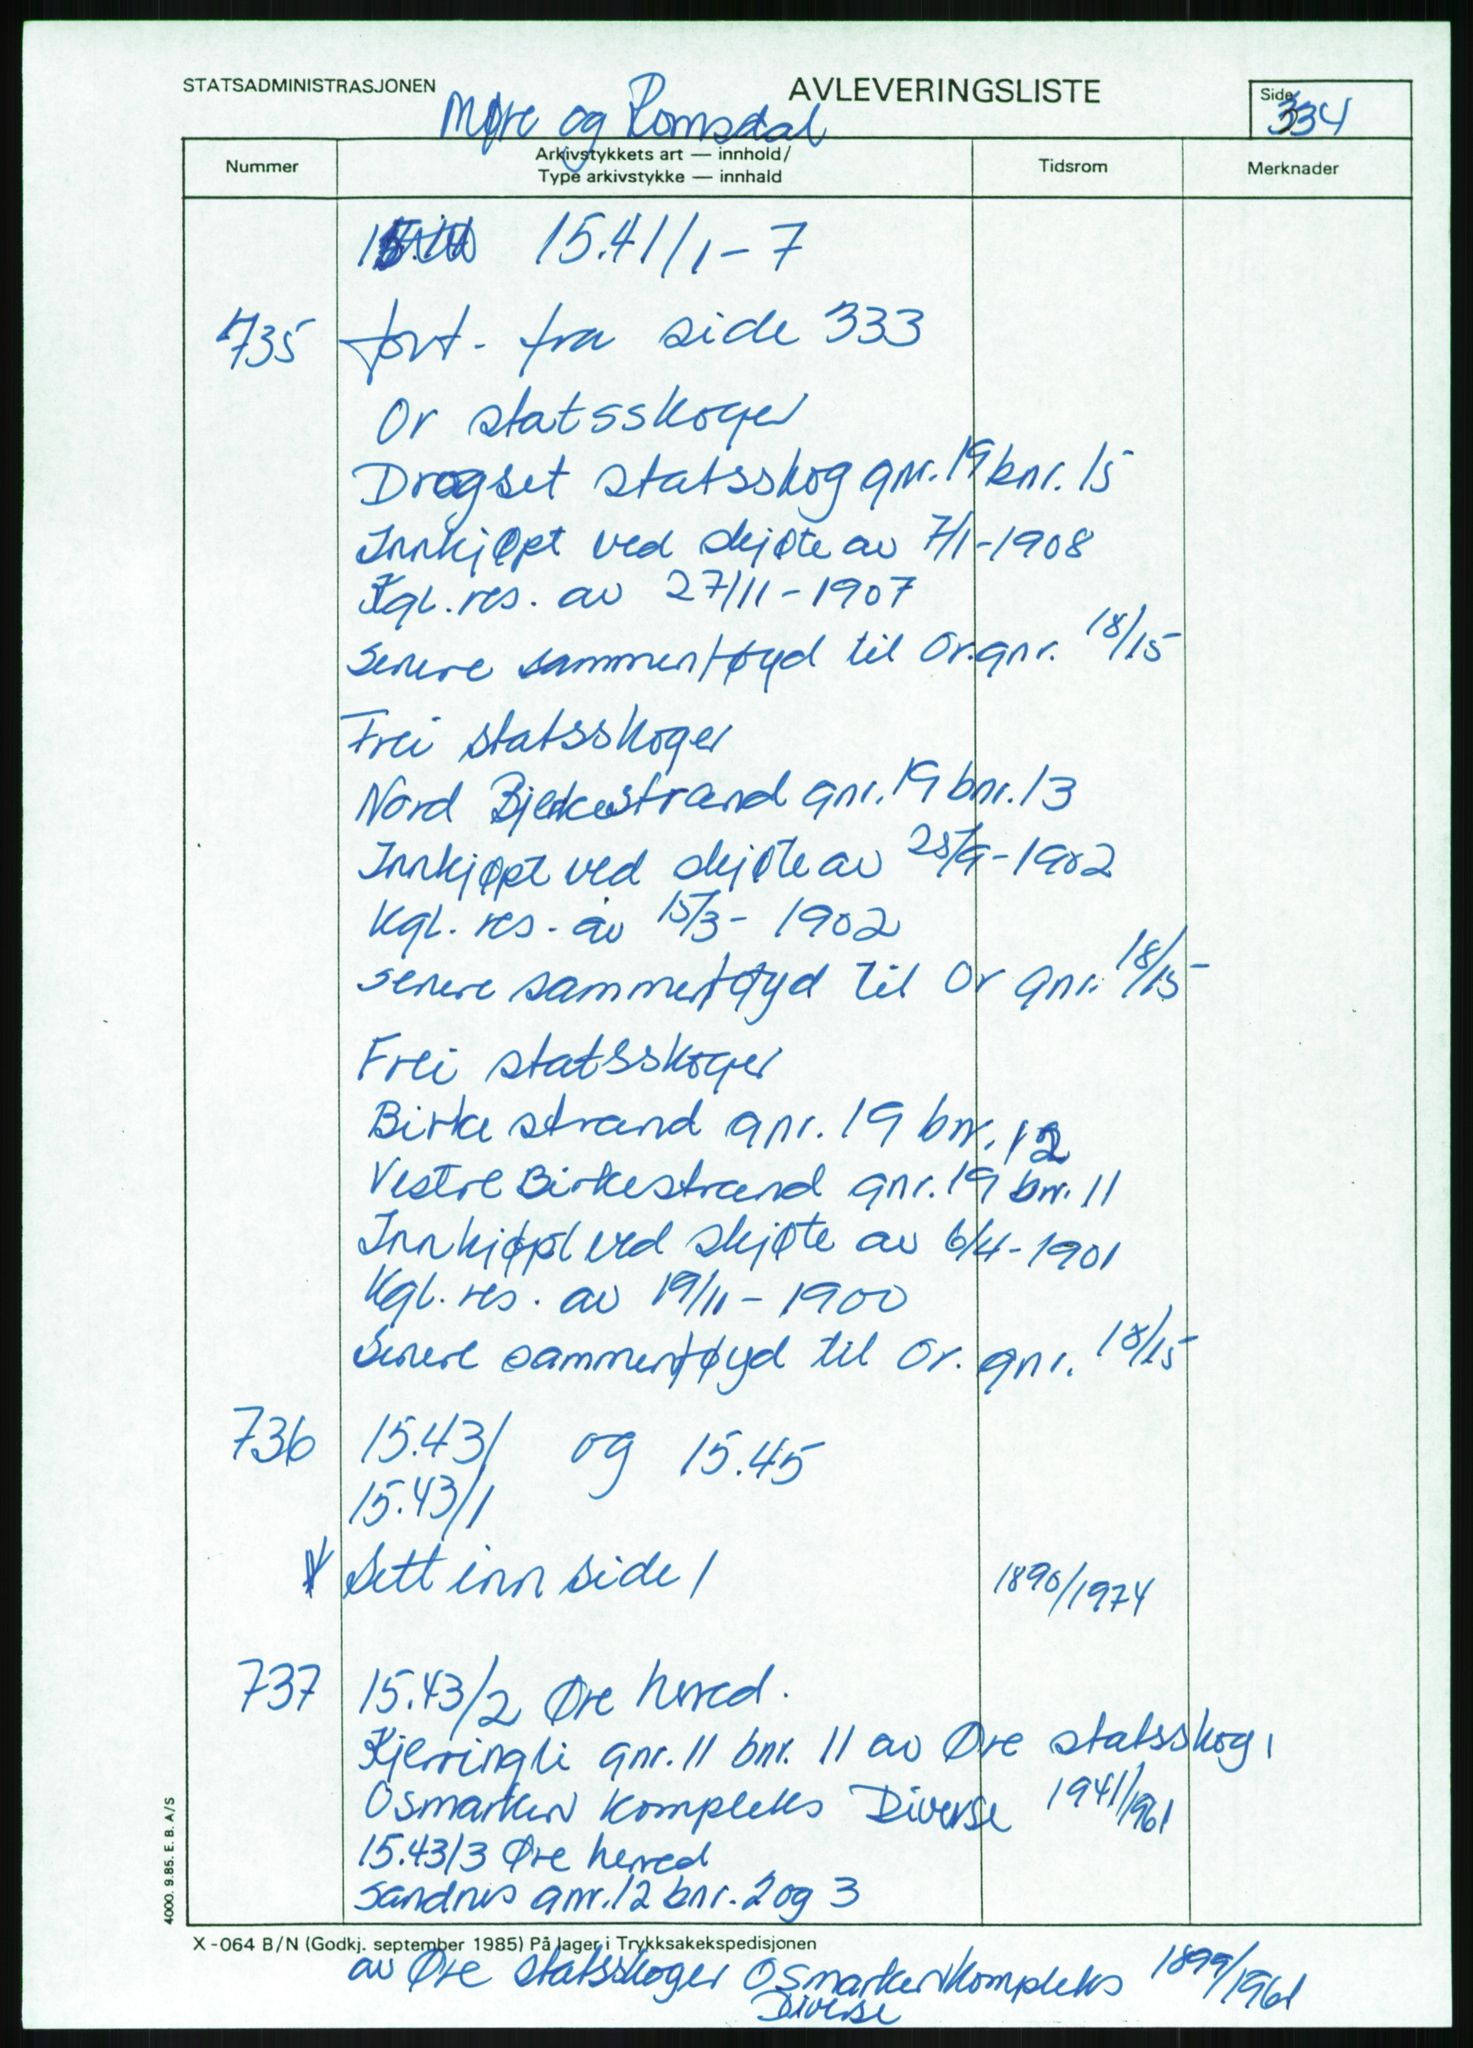 STATSADMINISTRASJONEN
AVLEVERINGSLISTE
Side
334
Møre og Romsdal
Nummer
Arkivstykkets art — innhold/
Type arkivstykke — innhald
Tidsrom
Merknader
15.41/1-7
735 fort. fra side 333
Or statsskoger
Drogset statsskog gnr. 19 bnr. 15
Innkjøpt ved skjøte av 7/1-1908
Kgl. res. av 27/11-1907
Senere sammenføyd til Or. gnr. 18/15
Frei statsskoger
Nord Bjerkestrand gnr. 19 bnr. 13
Innkjøpt ved skjøte av 25/9-1902
Kgl. res. av 15/3-1902
senere sammenføyd til Or gnr. 18/15
Frei statsskoger
Birkestrand gnr. 19 bnr. 12
Vestre Birkestrand gnr. 19 bnr. 11
Innkjøpt ved skjøte av 6/4-1901
Kgl. res. av 19/11-1900
Senere sammenføyd til Or. gnr. 18/15
736 15.43/ og 15.45
15.43/1
Sett inn side 1 1890/1974
737 15.43/2 Øre herred.
Kjerringli gnr. 11 bnr. 11 av Øre statsskog,
Osmarken kompleks Diverse 1941/1961
15.43/3 Øre herred
Sandnes gnr. 12 bnr. 2 og 3
X-064 B/N (Godkj. september 1985) På lager i Trykksakekspedisjonen
av Øre statsskoger Osmarkenkompleks 1899/1961
Diverse
4000. 9.85. E. B. A/S